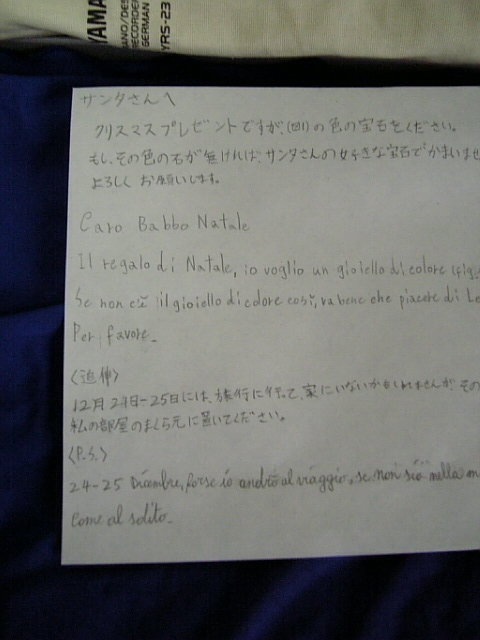 YAMA
ANO/DES
RECORDER
GERMAN
YRS-23
サンタさんへ
クリスマスプレゼントですが、(図1)の色の宝石をください。
もし、その色の石が無ければ、サンタさんの好きな宝石でかまいませ
よろしくお願いします。
Caro Babbo Natale
Il regalo di Natale, io voglio un gioiello di colore (fig.
Se non c'è il gioiello di colore così, va bene che piacere di Le
Per favore.
〈追伸〉
12月24日-25日には、旅行に行って、家にいないかもしれませんが、その
私の部屋のまくら元に置いてください。
〈P.S.〉
24-25 Dicembre, forse io andrò al viaggio, se non siò nella m
Come al solito.